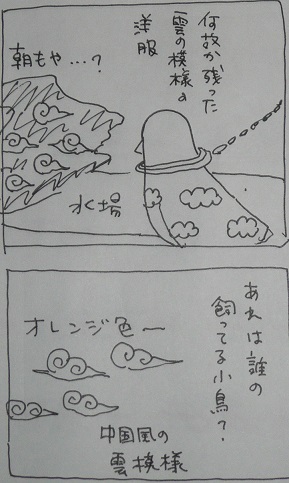 何故か残った
雲の模様の
洋服
朝もや…?
水場
あれは誰の
飼ってる小鳥?
オレンジ色〜
中国風の
雲模様